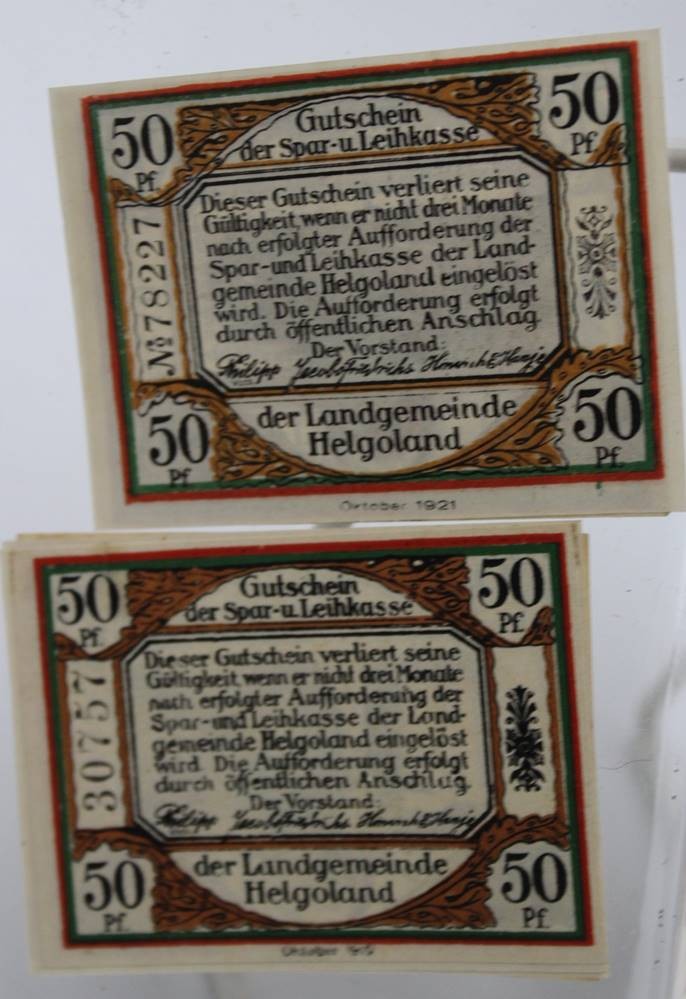 50 Pf. Gutschein 50 Pf.
der Spar-u. Leihkasse
Dieser Gutschein verliert seine
Gültigkeit, wenn er nicht drei Monate
nach erfolgter Aufforderung der
Spar-und Leihkasse der Land-
gemeinde Helgoland eingelöst
wird. Die Aufforderung erfolgt
durch öffentlichen Anschlag.
Der Vorstand:
№ 78227
50 Pf. der Landgemeinde 50 Pf.
Helgoland
Oktober 1921
50 Pf. Gutschein 50 Pf.
der Spar-u. Leihkasse
Dieser Gutschein verliert seine
Gültigkeit, wenn er nicht drei Monate
nach erfolgter Aufforderung der
Spar-und Leihkasse der Land-
gemeinde Helgoland eingelöst
wird. Die Aufforderung erfolgt
durch öffentlichen Anschlag.
Der Vorstand:
30757
50 Pf. der Landgemeinde 50 Pf.
Helgoland
Oktober